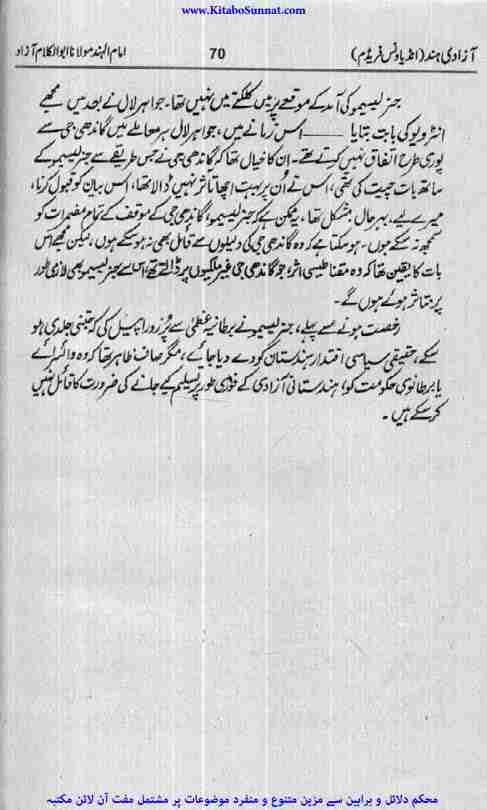 www.KitaboSunnat.com
آزادی ہند (انڈیا ونس فریڈم) 70 امام الہند مولانا ابوالکلام آزاد
جنرلسیمو کی آمد کے موقعے پر میں کلکتے میں نہیں تھا۔ جواہر لال نے بعد میں مجھے
انٹرویو کی بابت بتایا ——— اس زمانے میں، جواہر لال ہر معاملے میں گاندھی جی سے
پوری طرح اتفاق نہیں کرتے تھے۔ ان کا خیال تھا کہ گاندھی جی نے جس طریقے سے جنرلسیمو کے
ساتھ بات چیت کی تھی، اس نے اُن پر بہت اچھا تاثر نہیں ڈالا تھا، اس بیان کو قبول کرنا،
میرے لیے، بہرحال مشکل تھا، یہ ممکن ہے کہ جنرلسیمو، گاندھی جی کے موقف کے تمام مضمرات کو
سمجھ نہ سکے ہوں۔ ہو سکتا ہے کہ وہ گاندھی جی کی دلیلوں سے قائل بھی نہ ہو سکے ہوں، لیکن مجھے اس
بات کا یقین تھا کہ وہ مقناطیسی اثر، جو گاندھی جی غیر ملکیوں پر ڈالتے تھے، اس سے جنرلسیمو بھی لازمی طور
پر متاثر ہوئے ہوں گے۔
رخصت ہونے سے پہلے، جنرلسیمو نے برطانیہ عظمیٰ سے پُرزور اپیل کی کہ جتنی جلدی ہو
سکے، حقیقی سیاسی اقتدار ہندستان کو دے دیا جائے، مگر صاف ظاہر تھا کہ وہ وائسرائے
یا برطانوی حکومت کو، ہندستانی آزادی کے فوری طور پر تسلیم کیے جانے کی ضرورت کا قائل نہیں
کر سکے ہیں۔
محکم دلائل و براہین سے مزین متنوع و منفرد موضوعات پر مشتمل مفت آن لائن مکتبہ